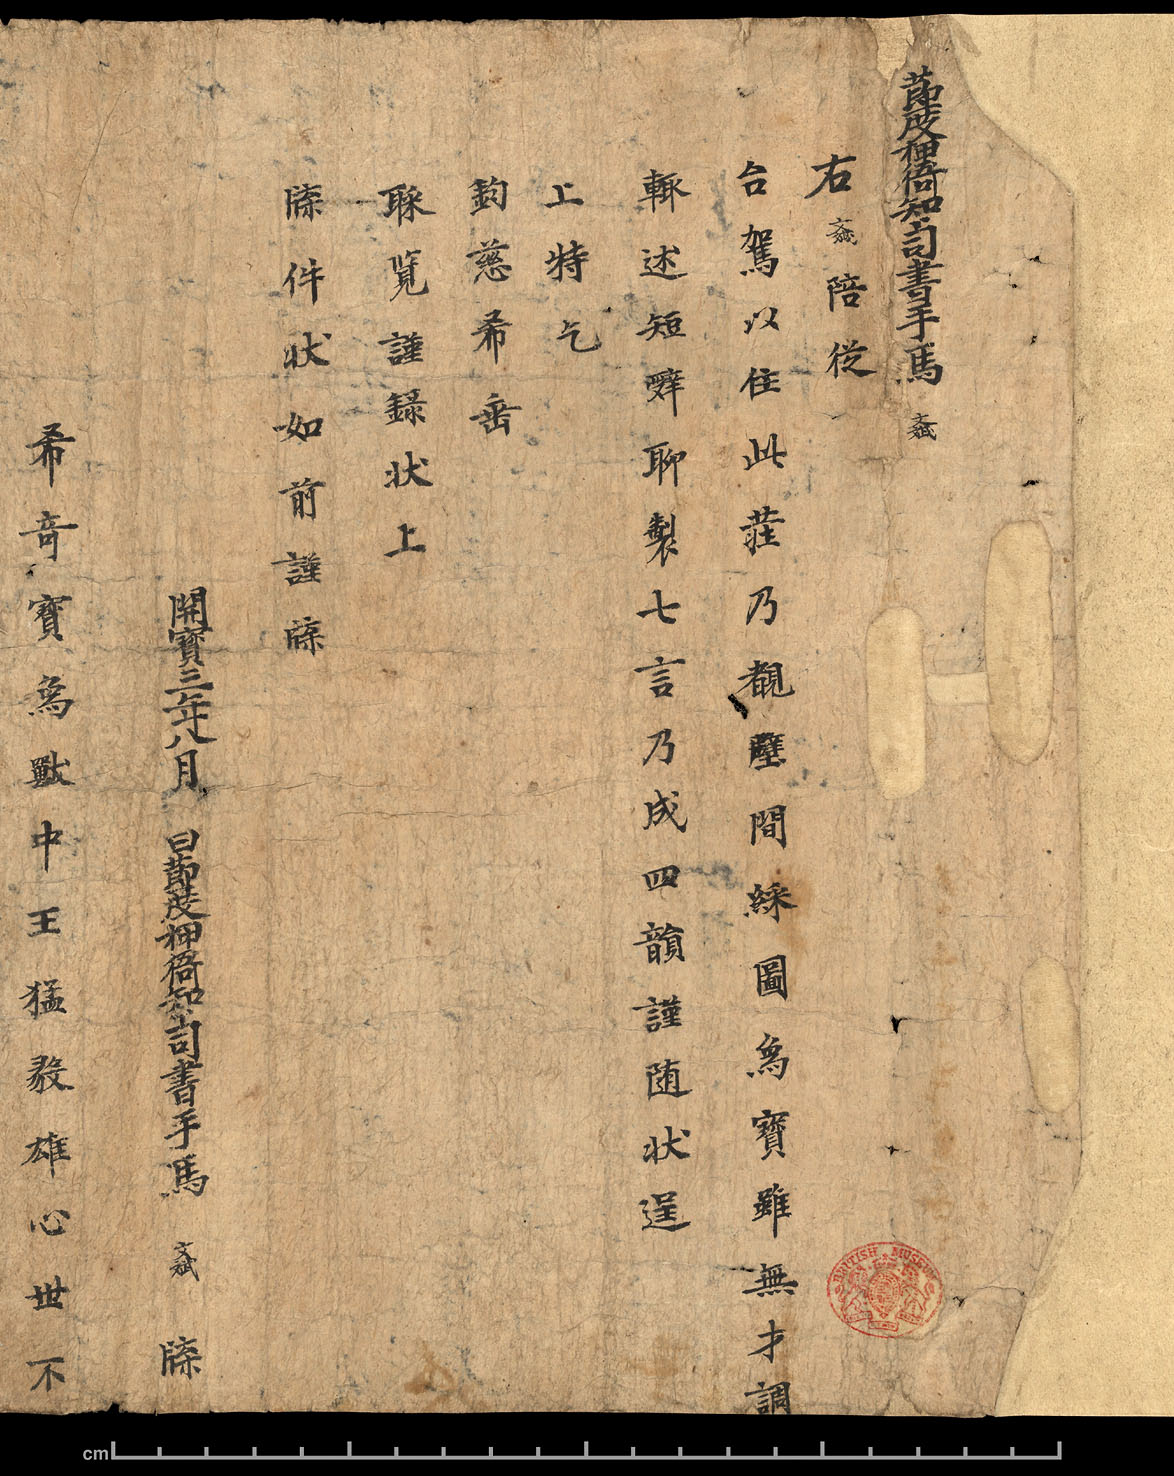 節度押衙知司書手馬 文斌
右文斌陪從
台駕以住此莊乃覩壁間綵圖為寶雖無才調
輒述短辭聊製七言乃成四韻謹随状逞
上特乞
鈞慈希垂
睬覧謹録状上
牒件状如前謹牒
開寶三年八月 日節度押衙知司書手馬 文斌 牒
希奇寶為獸中王猛毅雄心世不
BRITISH MUSEUM
cm